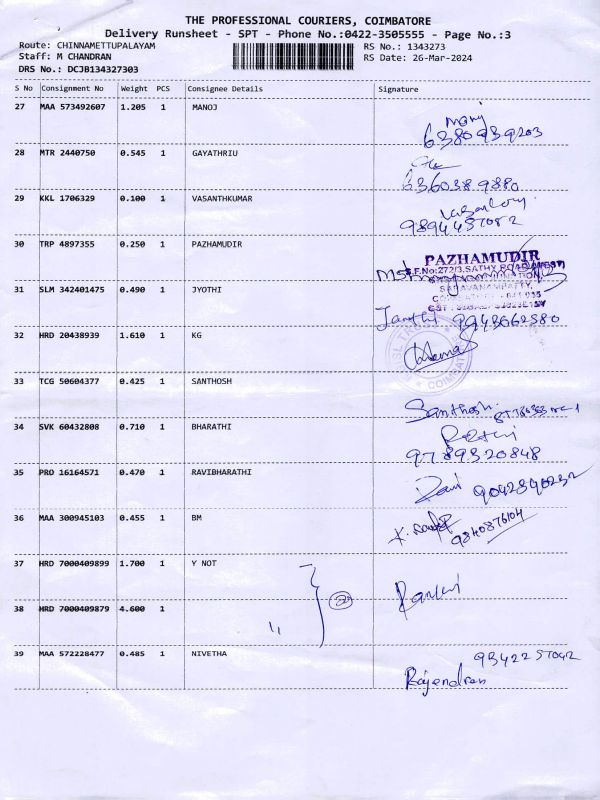 THE PROFESSIONAL COURIERS, COIMBATORE
Delivery Runsheet - SPT - Phone No.:0422-3505555 - Page No.:3
Route: CHINNAMETTUPALAYAM RS No.: 1343273
Staff: M CHANDRAN RS Date: 26-Mar-2024
DRS No.: DCJB134327303
S No Consignment No Weight PCS Consignee Details Signature
27 MAA 573492607 1.205 1 MANOJ
6380939203
28 MTR 2440750 0.545 1 GAYATHRIU
6360389880
29 KKL 1706329 0.100 1 VASANTHKUMAR
9894457082
30 TRP 4897355 0.250 1 PAZHAMUDIR
PAZHAMUDIR
S.F.No:272/3,SATHY ROAD
SARAVANAMPATTY,
31 SLM 342401475 0.490 1 JYOTHI
9943062580
32 HRD 20438939 1.610 1 KG
33 TCG 50604377 0.425 1 SANTHOSH
Santhosh.
34 SVK 60432808 0.710 1 BHARATHI
9789320848
35 PRO 16164571 0.470 1 RAVIBHARATHI
Ravi 9042890232
36 MAA 300945103 0.455 1 BM
9840876104
37 HRD 7000409899 1.700 1 Y NOT
2
38 HRD 7000409879 4.600 1
39 MAA 572228477 0.485 1 NIVETHA
9342257042
Rajendran